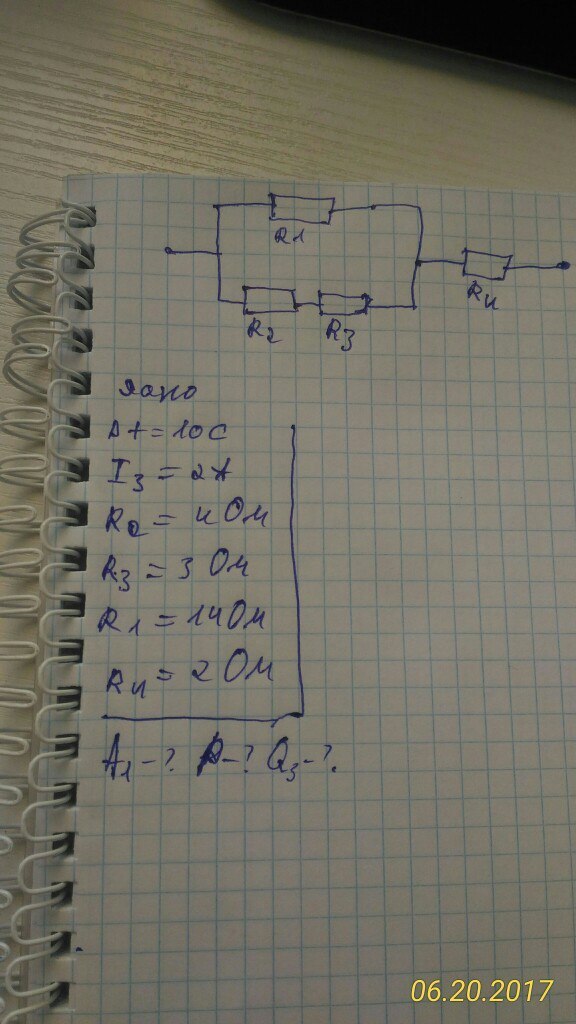 R1
R2 R3 R4
Дано
Δt = 10с
I3 = 2А
R2 = 4 Ом
R3 = 3 Ом
R1 = 14 Ом
R4 = 2 Ом
A1 - ? P - ? Q3 - ?.
06.20.2017